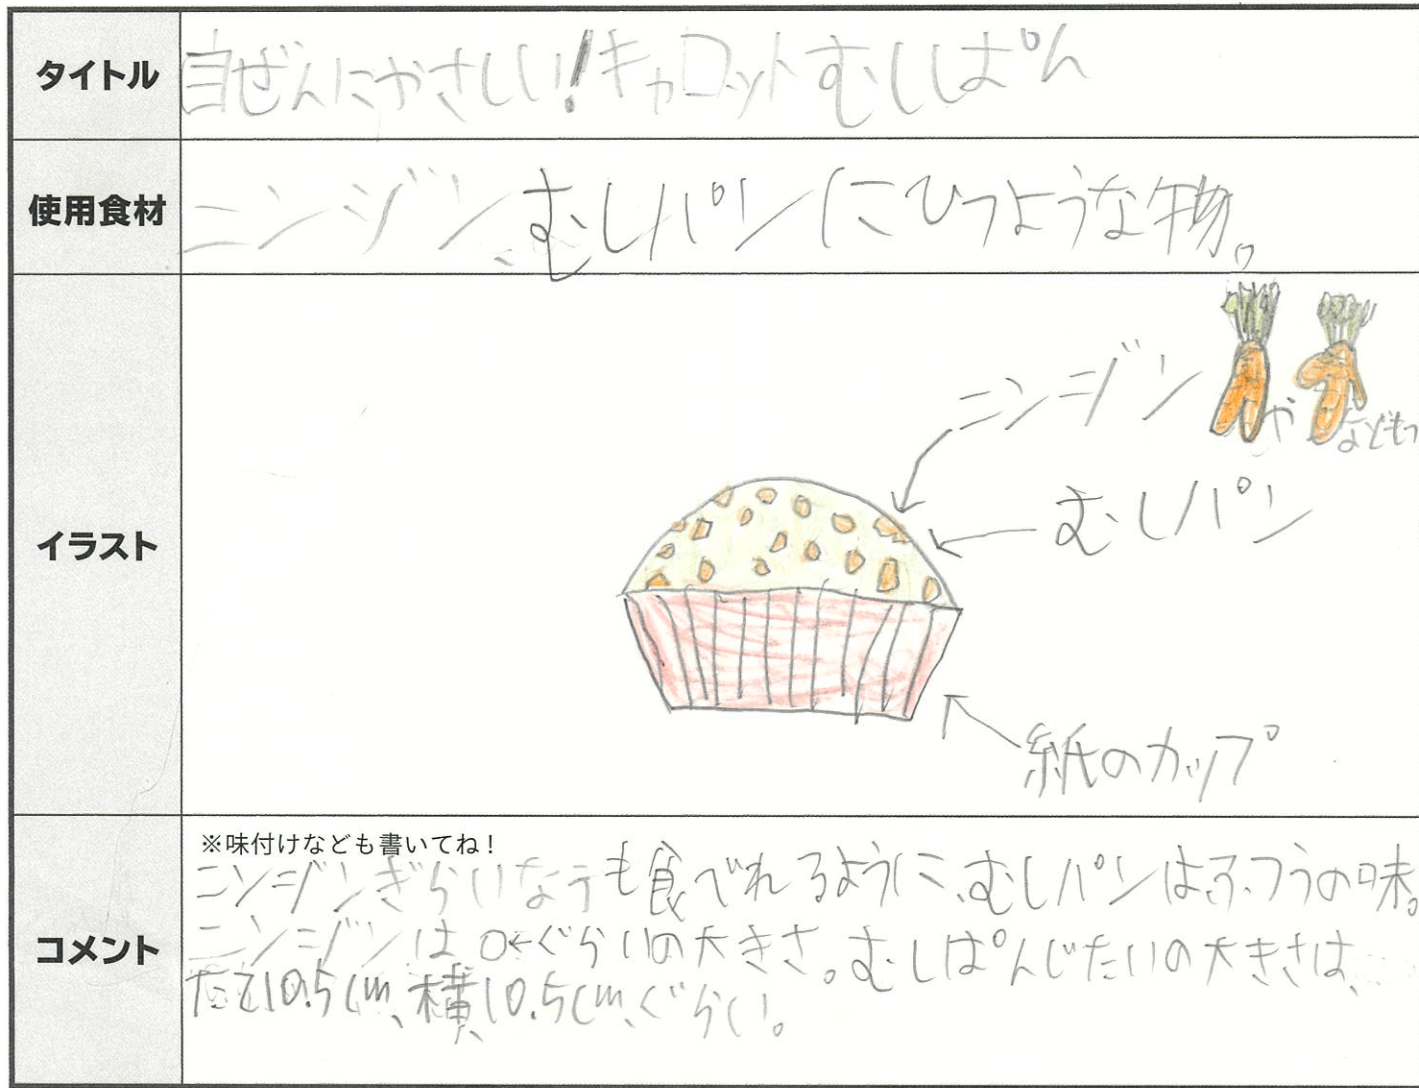 タイトル
自ぜんにやさしい!キャロットむしぱん
使用食材
ニンジン、むしパンにひつような物。
イラスト
ニンジン
や
なども
むしパン
紙のカップ
コメント
※味付けなども書いてね!
ニンジンぎらいな子も食べれるように、むしパンはふつうの味。
ニンジンは○←ぐらいの大きさ。むしぱんじたいの大きさは、
たて10.5cm、横10.5cm、ぐらい。